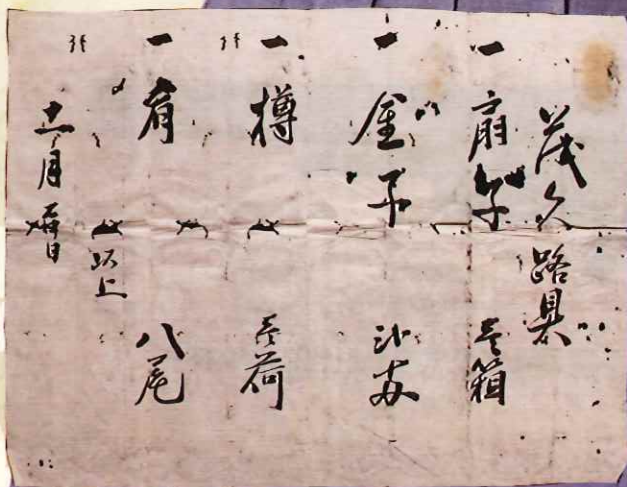 茂久路具
一 扇子 壱箱
一 金子
一 樽 壱荷
一 肴 八尾
以上
十一月